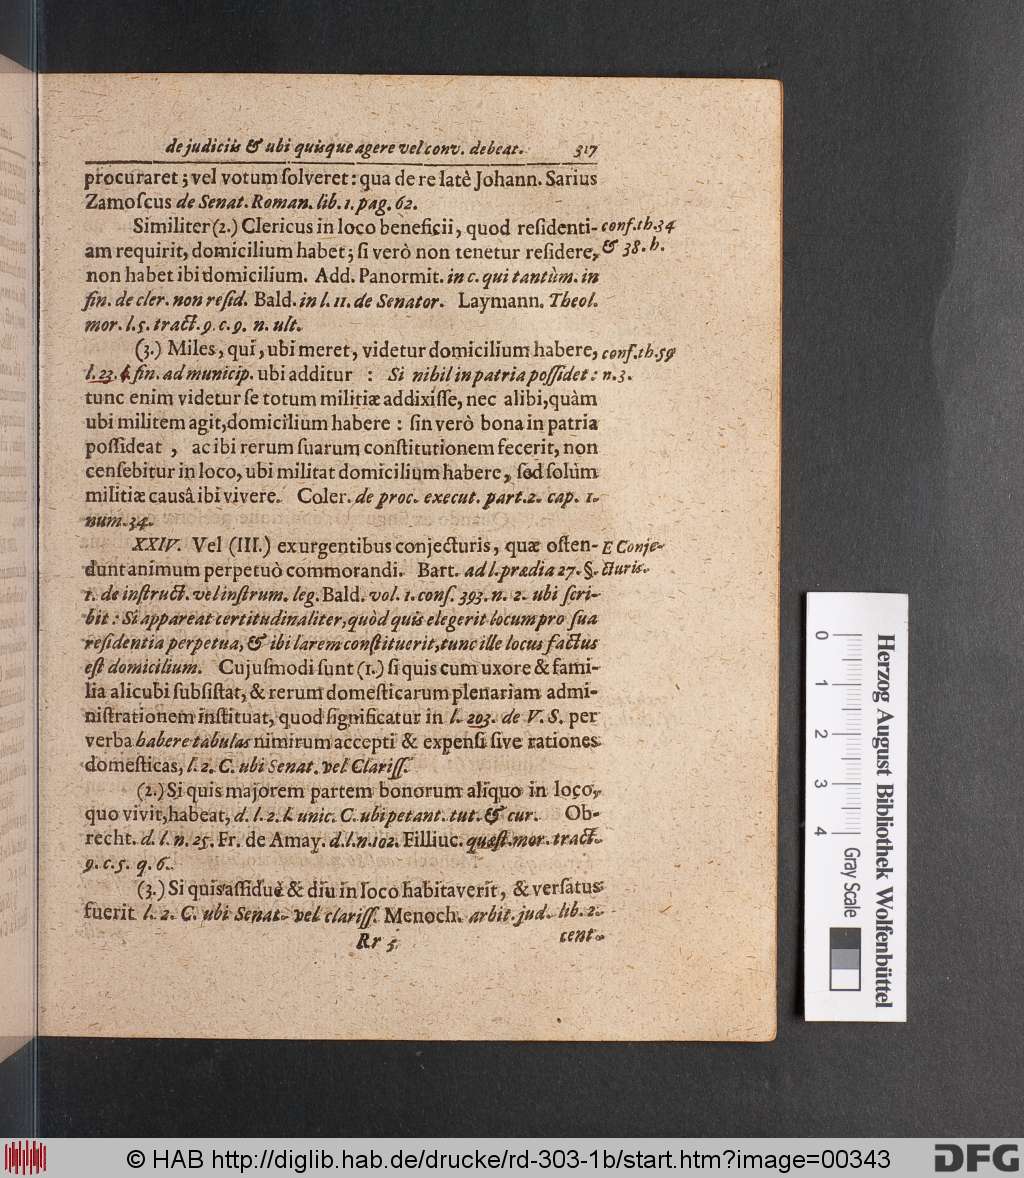 de judiciis & ubi quisque agere vel conv. debeat. 317
procuraret; vel votum ſolveret: qua de re latè Johann. Sarius
Zamoſcus de Senat. Roman. lib. 1. pag. 62.
Similiter (2.) Clericus in loco beneficii, quod reſidenti-
conf. th. 34
am requirit, domicilium habet; ſi verò non tenetur reſidere,
& 38. h.
non habet ibi domicilium. Add. Panormit. in c. qui tantùm. in
fin. de cler. non reſid. Bald. in l. 11. de Senator. Laymann. Theol.
mor. l. 5. tract. 9. c. 9. n. ult.
(3.) Miles, qui, ubi meret, videtur domicilium habere,
conf. th. 59
l. 23. §. fin. ad municip. ubi additur : Si nihil in patria poſſidet:
n. 3.
tunc enim videtur ſe totum militiæ addixiſſe, nec alibi, quàm
ubi militem agit, domicilium habere : ſin verò bona in patria
poſſideat , ac ibi rerum ſuarum conſtitutionem fecerit, non
cenſebitur in loco, ubi militat domicilium habere, ſed ſolùm
militiæ causâ ibi vivere. Coler. de proc. execut. part. 2. cap. 1.
num. 34.
XXIV. Vel (III.) exurgentibus conjecturis, quæ oſten-
E Conje-
dunt animum perpetuò commorandi. Bart. ad l. prædia 27. §.
cturis.
1. de inſtruct. vel inſtrum. leg. Bald. vol. 1. conſ. 393. n. 2. ubi ſcri-
bit : Si appareat certitudinaliter, quòd quis elegerit locum pro ſua
reſidentia perpetua, & ibi larem conſtituerit, tunc ille locus factus
eſt domicilium. Cujuſmodi ſunt (1.) ſi quis cum uxore & fami-
lia alicubi ſubſiſtat, & rerum domeſticarum plenariam admi-
niſtrationem inſtituat, quod ſignificatur in l. 203. de V. S. per
verba habere tabulas nimirum accepti & expenſi ſive rationes
domeſticas, l. 2. C. ubi Senat. vel Clariſſ.
(2.) Si quis majorem partem bonorum aliquo in loco,
quo vivit, habeat, d. l. 2. l. unic. C. ubi petant. tut. & cur. Ob-
recht. d. l. n. 25. Fr. de Amay. d. l. n. 102. Filliuc. quæſt. mor. tract.
9. c. 5. q. 6.
(3.) Si quis aſſiduè & diu in loco habitaverit, & verſatus
fuerit l. 2. C. ubi Senat. vel clariſſ. Menoch. arbit. jud. lib. 2.
Rr 5 cent.
0 1 2 3 4
Gray Scale
Herzog August Bibliothek Wolfenbüttel
© HAB http://diglib.hab.de/drucke/rd-303-1b/start.htm?image=00343
DFG